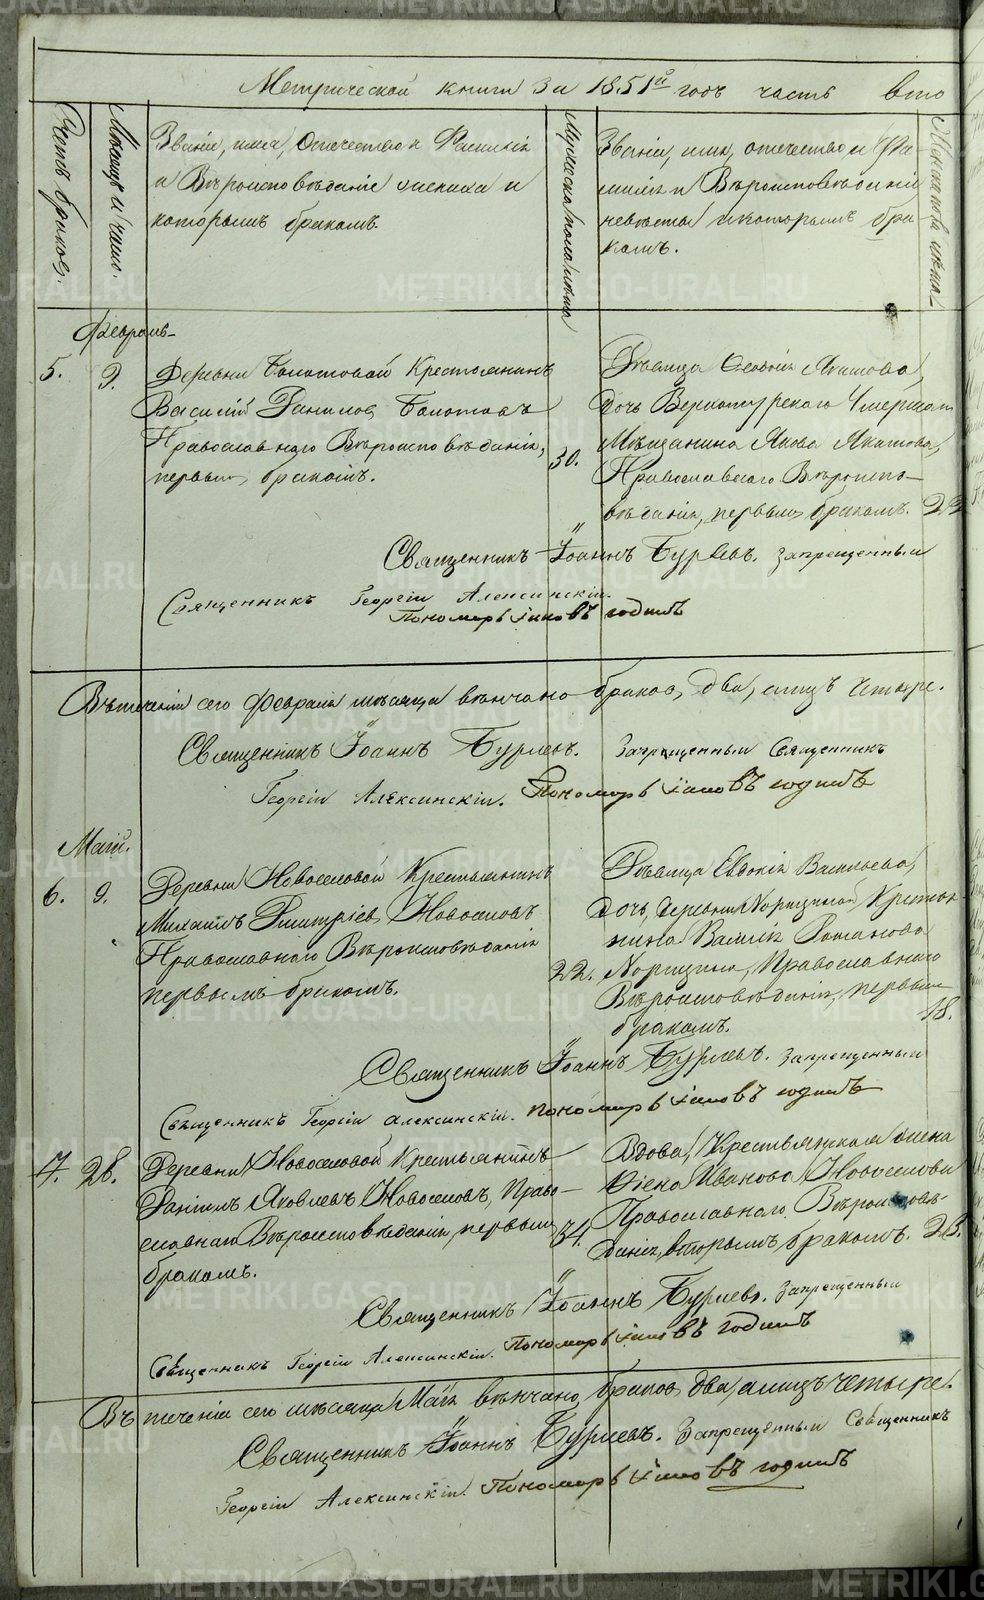 Метрической книги за 1851й годъ часть вто
Счетъ браков.
Месяцъ и число.
Званіе, имя, отечество и Фамилія
и Вѣроисповѣданіе жениха и
которымъ бракомъ.
Званіе, имя, отечество и Фа
милія и Вѣроисповѣданіе
невѣсты и которымъ бра
комъ.
Февраль
5. 9.
Деревни Болотовой Крестьянинъ
Василій Данилов Болотовъ
Православнаго Вѣроисповѣданія,
первым бракомъ.
30.
Дѣвица Якимова,
Дочь Верхотурскаго Умершаго
Мѣщанина Якова Якимова,
Православнаго Вѣроиспо-
вѣданія, первым бракомъ.
Священникъ Іоаннъ Запрещенный
Священникъ Георгій Алексинскій.
Пономарь
Въ теченіи сего Февраля мѣсяца вѣнчано браков, два, лицъ четыре.
Священникъ Іоаннъ Запрещенный Священникъ
Георгій Алексинскій. Пономарь
Маій.
6. 9.
Деревни Новоселовой Крестьянинъ
Михаилъ Дмитріев Новоселовъ
Православнаго Вѣроисповѣданія
первымъ бракомъ.
22.
Дѣвица Евдокія Васильева,
Дочь, Деревни Крестья
нина Василія Романова
Православнаго
Вѣроисповѣданія, первым
бракомъ.
18.
Священникъ Іоаннъ Запрещенный
Священникъ Георгій Алексинскій. Пономарь
7. 28.
Деревни Новоселовой Крестьянинъ
Даніилъ Яковлевъ Новоселовъ, Право-
славнаго Вѣроисповѣданія, первым
бракомъ.
34.
Вдова, Крестьянская жена
Иванова Новоселова
Православнаго Вѣроисповѣ-
данія, вторымъ бракомъ. 23.
Священникъ Іоаннъ Запрещенный
Священникъ Георгій Алексинскій. Пономарь
Въ теченіи сего мѣсяца Маія вѣнчано, браков два, а лицъ четыре.
Священникъ Іоаннъ Запрещенный Священникъ
Георгій Алексинскій. Пономарь
METRIKI.GASO-URAL.RU